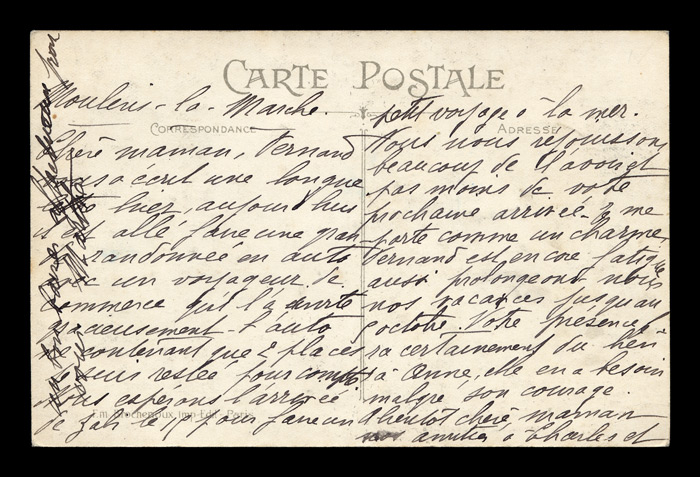 CARTE POSTALE
Moulins-la-Marche.
CORRESPONDANCE
Chère maman, Fernand
vous a ecrit une longue
hier, aujourd'hui
il est allé faire une gran
de randonnée en auto
avec un voyageur de
commerce qui l'a invité
gracieusement - l'auto
ne contenant que 2 places
je suis restée pour compte
nous espérons l'arrivée
de Zabi le 1er pour faire un
Em. Rochereux, imp.-Édit. Paris
petit voyage à la mer.
ADRESSE
Nous nous rejouissons
beaucoup de l'avoir et
pas moins de votre
prochaine arrivée. Je me
porte comme un charme,
Fernand est encore fatigué
aussi prolongeons nous
nos vacances jusqu'au
octobre. Votre présence
ra certainement du bien
à Anne, elle en a besoin
malgré son courage.
A bientôt chère maman
amitiés à Charles et
un bon baiser
pour vous